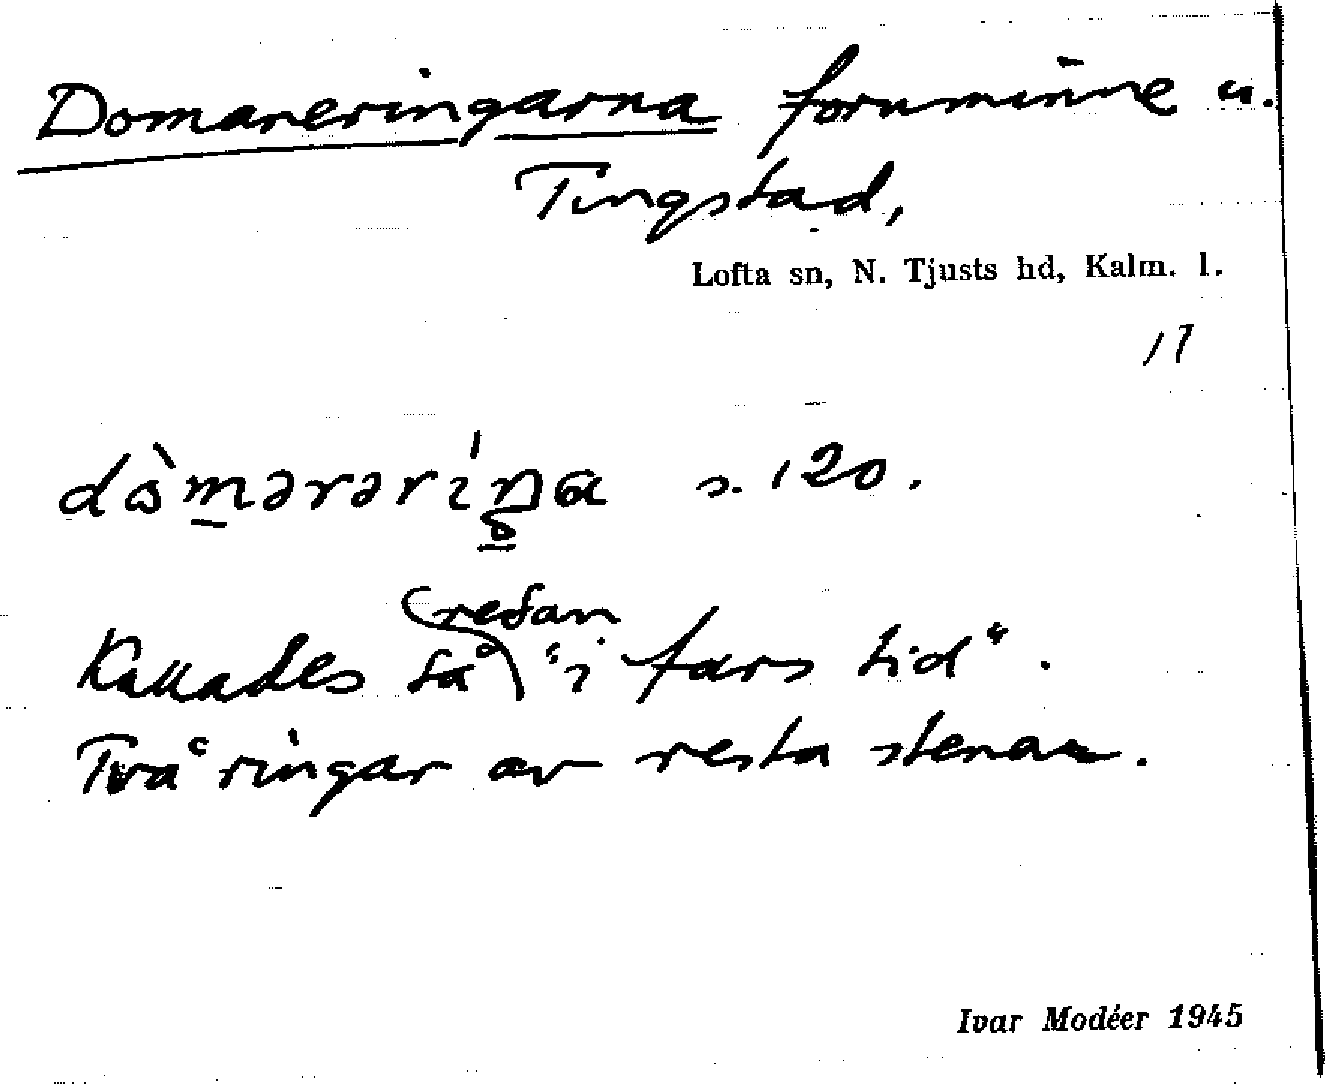 Domareringarna fornminne u.
Tingstad,
Lofta sn, N. Tjusts hd, Kalm. l.
17
dò̀mərəríŋa s. 120.
Kallades så redan "i fars tid".
Två ringar av resta stenar.
Ivar Modéer 1945